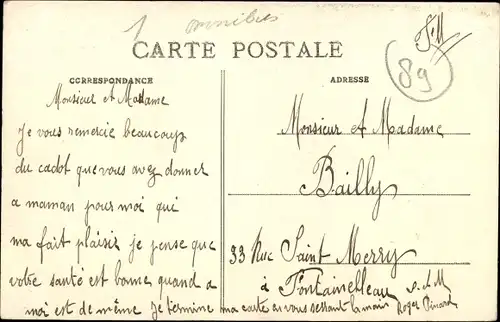 1 omnibus
F.M
CARTE POSTALE
89
CORRESPONDANCE
ADRESSE
Monsieur et Madame
Je vous remercie beaucoup
du cadot que vous avez donner
a maman pour moi qui
ma fait plaisir je pense que
votre santé est bonne quand a
moi est de même Je termine ma carte en vous serrant la main
Roger Pinard
Monsieur et Madame
Bailly
33 Rue Saint Merry
à Fontainelleau
S.-et-M